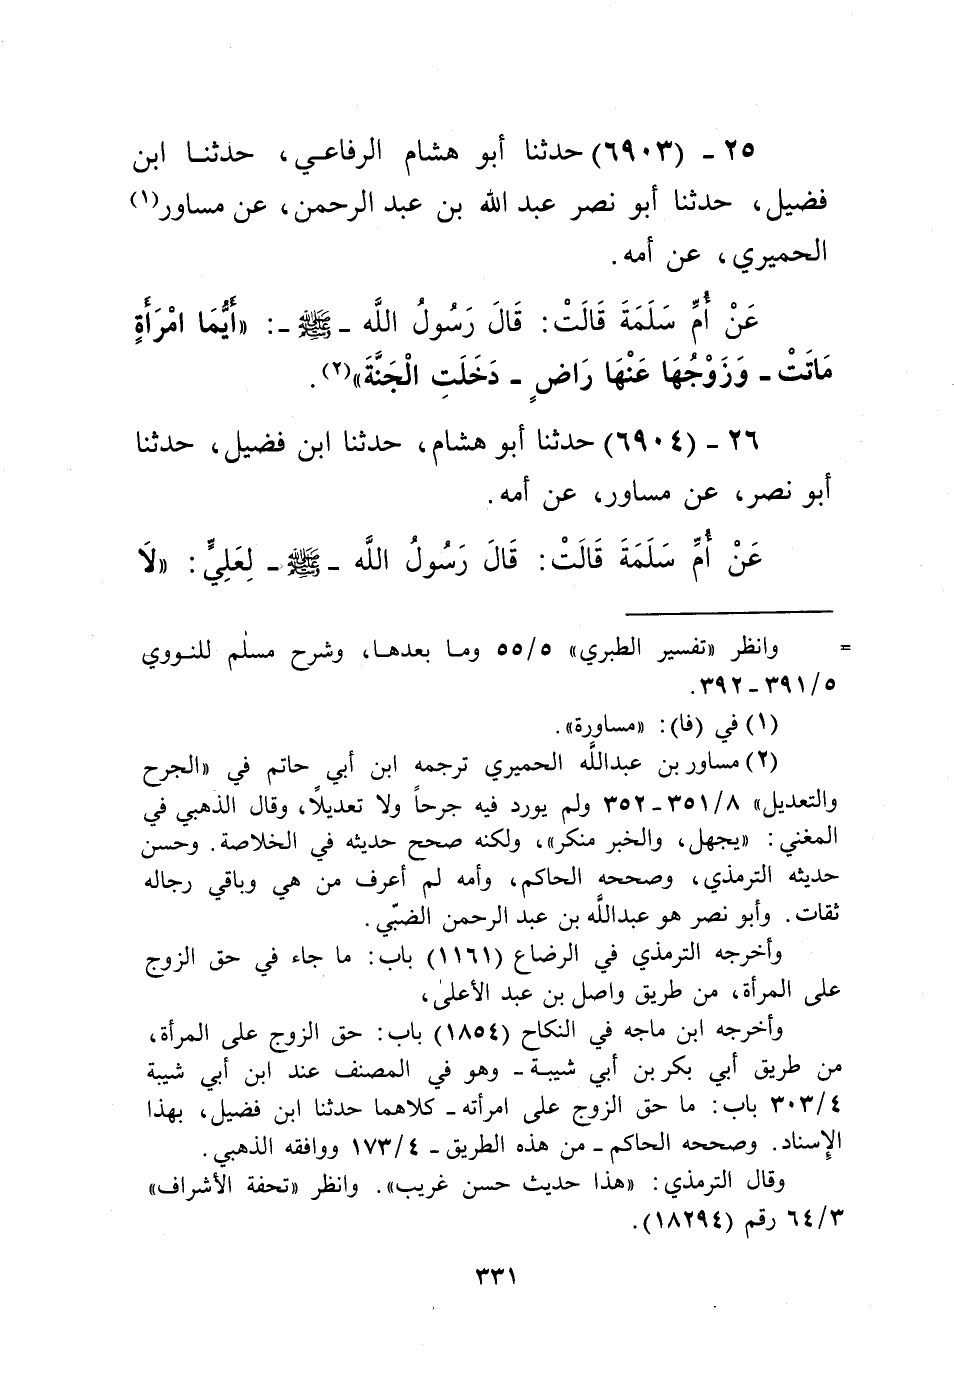 ٢٥ - (٦٩٠٣) حدثنا أبو هشام الرفاعي، حدثنا ابن
فضيل، حدثنا أبو نصر عبد الله بن عبد الرحمن، عن مساور(١)
الحميري، عن أمه.
عَنْ أُمِّ سَلَمَةَ قَالَتْ: قَالَ رَسُولُ اللَّه - ﷺ -: «أَيُّمَا امْرَأَةٍ
مَاتَتْ - وَزَوْجُهَا عَنْهَا رَاضٍ - دَخَلَتِ الْجَنَّةَ»(٢).
٢٦ - (٦٩٠٤) حدثنا أبو هشام، حدثنا ابن فضيل، حدثنا
أبو نصر، عن مساور، عن أمه.
عَنْ أُمِّ سَلَمَةَ قَالَتْ: قَالَ رَسُولُ اللَّه - ﷺ - لِعَلِيٍّ: «لَا
= وانظر «تفسير الطبري» ٥/٥٥ وما بعدها، وشرح مسلم للنووي
٥/٣٩١-٣٩٢.
(١) في (فا): «مساورة».
(٢) مساور بن عبداللَّه الحميري ترجمه ابن أبي حاتم في «الجرح
والتعديل» ٨/٣٥١-٣٥٢ ولم يورد فيه جرحاً ولا تعديلاً، وقال الذهبي في
المغني: «يجهل، والخبر منكر»، ولكنه صحح حديثه في الخلاصة. وحسن
حديثه الترمذي، وصححه الحاكم، وأمه لم أعرف من هي وباقي رجاله
ثقات. وأبو نصر هو عبداللَّه بن عبد الرحمن الضبّي.
وأخرجه الترمذي في الرضاع (١١٦١) باب: ما جاء في حق الزوج
على المرأة، من طريق واصل بن عبد الأعلىٰ،
وأخرجه ابن ماجه في النكاح (١٨٥٤) باب: حق الزوج على المرأة،
من طريق أبي بكر بن أبي شيبة - وهو في المصنف عند ابن أبي شيبة
٤/٣٠٣ باب: ما حق الزوج على امرأته - كلاهما حدثنا ابن فضيل، بهذا
الإسناد. وصححه الحاكم - من هذه الطريق - ٤/١٧٣ ووافقه الذهبي.
وقال الترمذي: «هذا حديث حسن غريب». وانظر «تحفة الأشراف»
٣/٦٤ رقم (١٨٢٩٤).
٣٣١